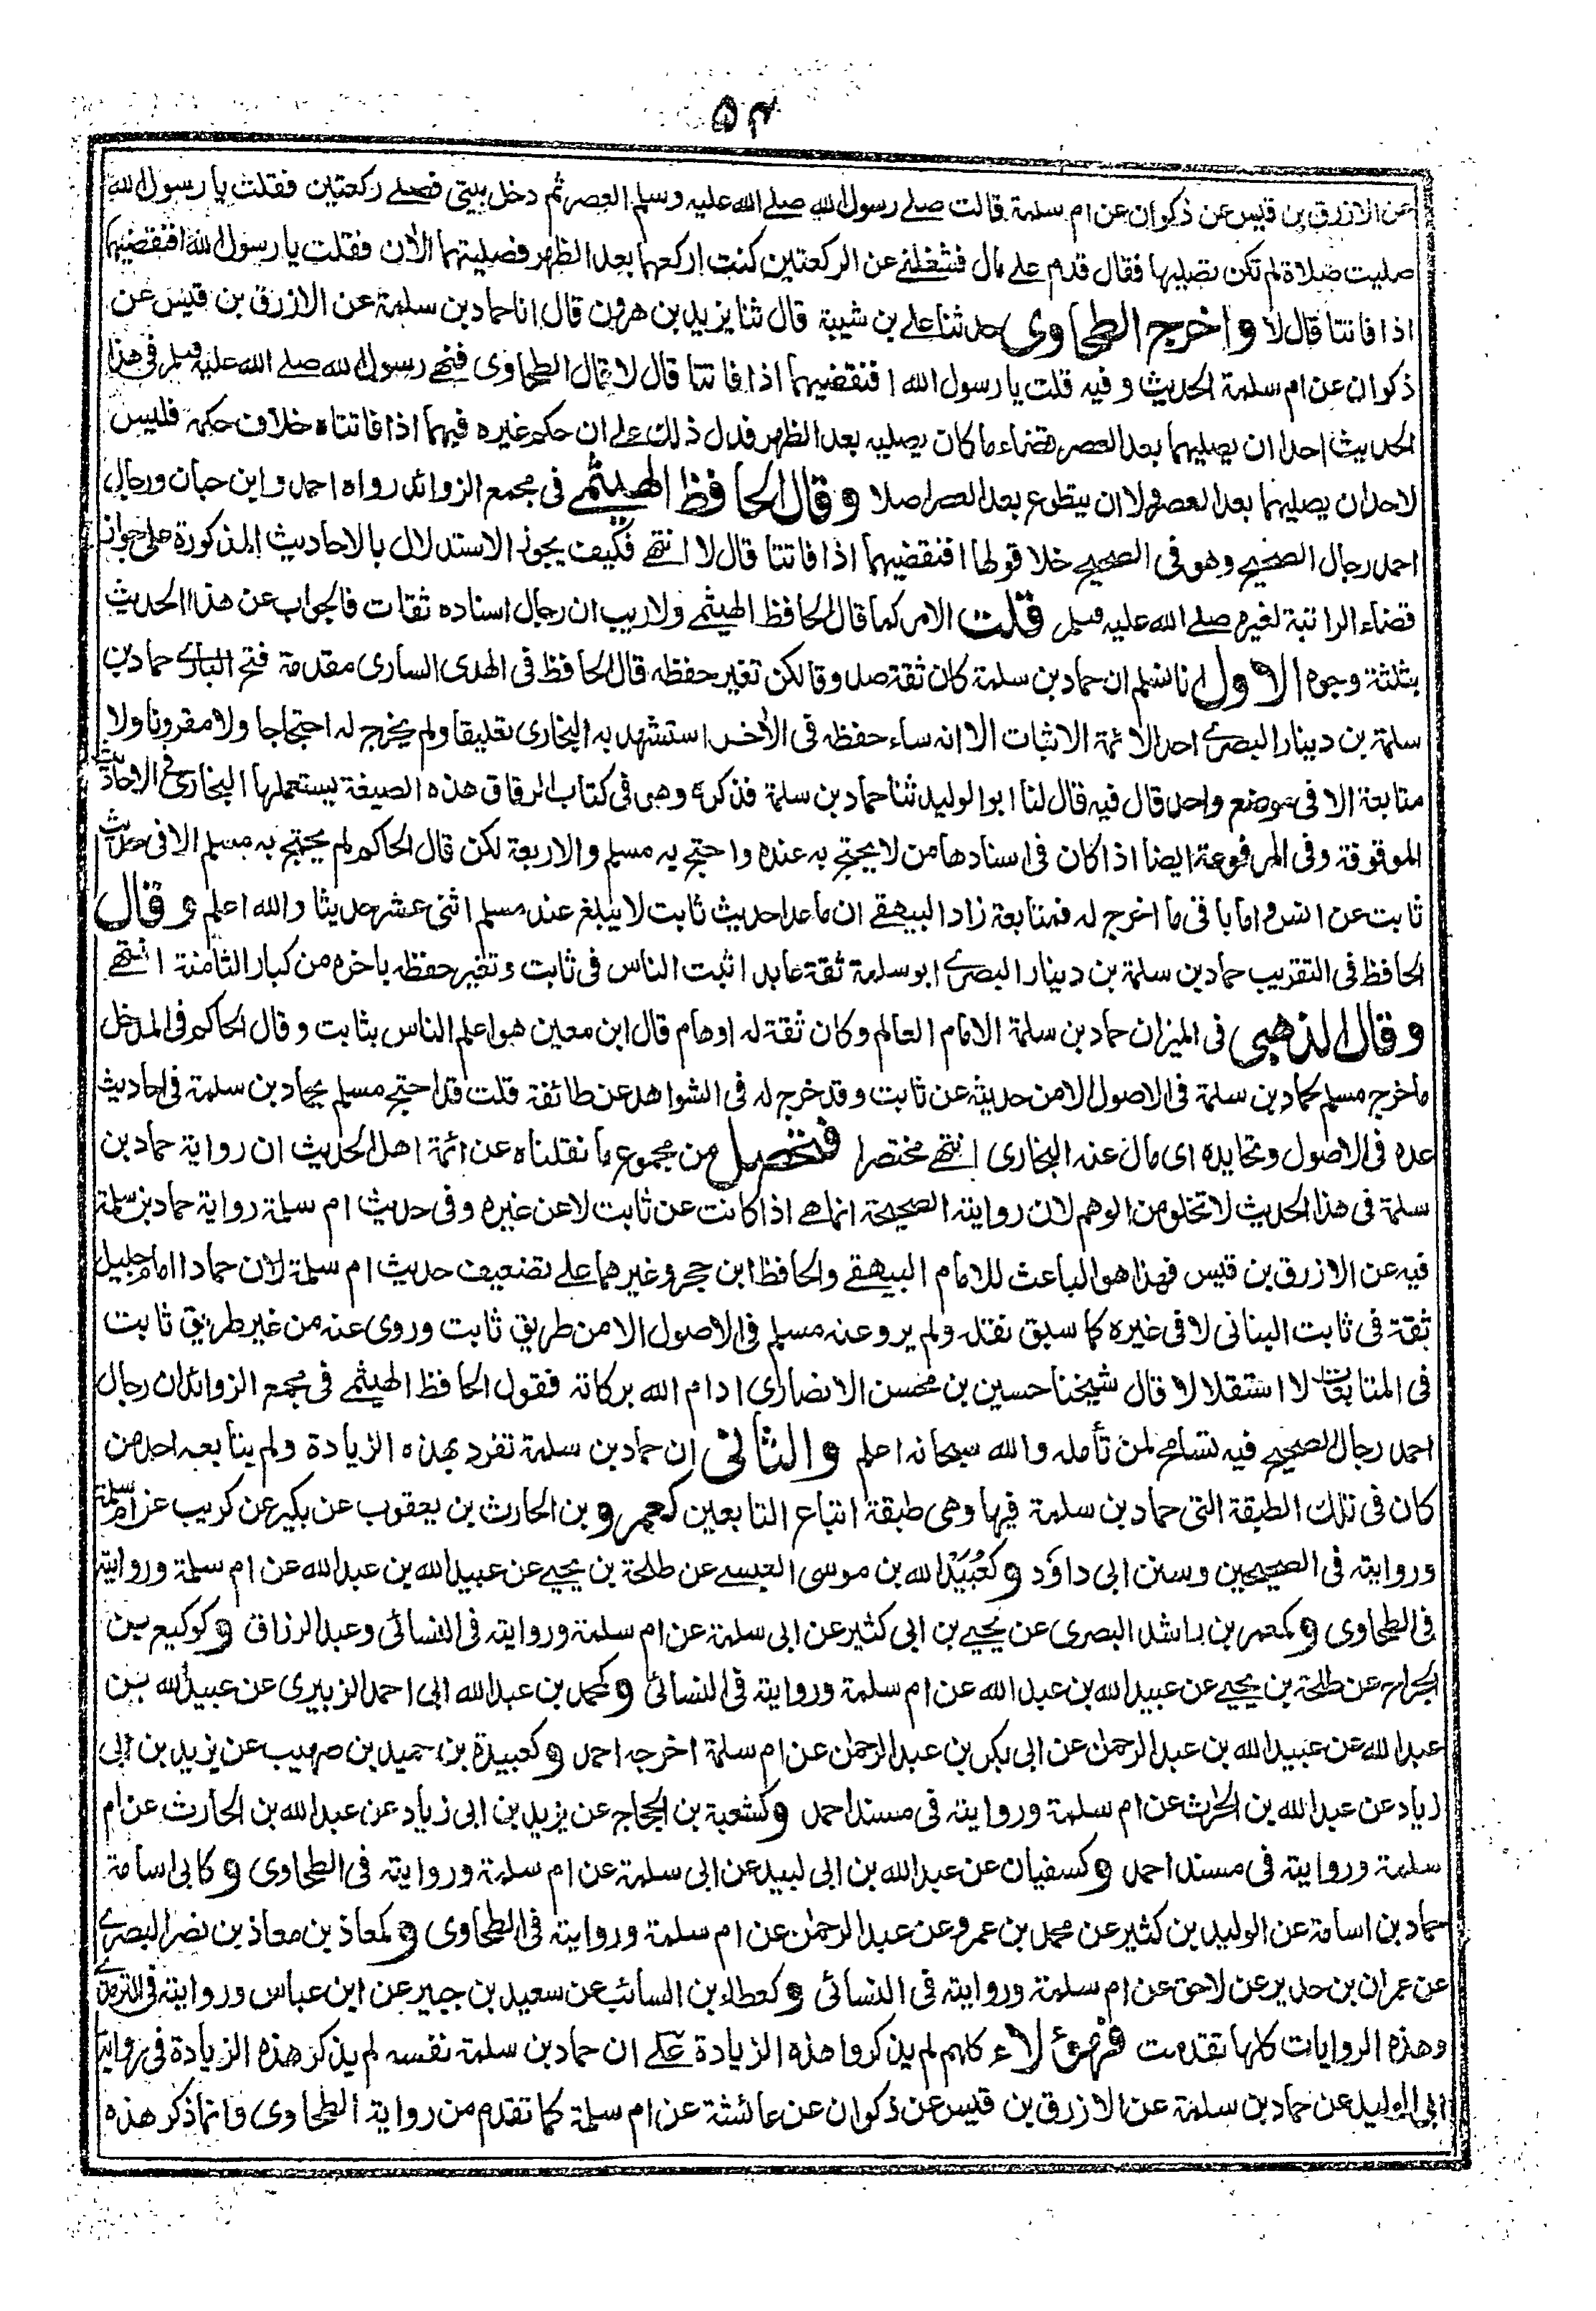 ٥٤
عن الازرق بن قيس عن ذكوان عن ام سلمة قالت صلے رسول الله صلے الله عليه وسلم العصر ثم دخل بيتى فصلے ركعتين فقلت يا رسول الله
صليت صلاة لم تكن تصليها فقال قدم علے مال فشغلنے عن الركعتين كنت اركعهما بعد الظهر فصليتهما الآن فقلت يا رسول الله افنقضيهما
اذا فاتتا قال لا واخرج الطحاوى حدثنا علے بن شيبة قال ثنا يزيد بن هرون قال انا حماد بن سلمة عن الازرق بن قيس عن
ذكوان عن ام سلمة الحديث وفيه قلت يا رسول الله افنقضيهما اذا فاتتا قال لا قال الطحاوى فنهے رسول الله صلے الله عليه وسلم فى هذا
الحديث احدا ان يصليهما بعد العصر قضاء ما كان يصليه بعد الظهر فدل ذلك علے ان حكم غيره فيهما اذا فاتتاه خلاف حكمه فليس
لاحد ان يصليهما بعد العصر ولا ان يتطوع بعد العصر اصلا وقال الحافظ الهيثمے فى مجمع الزوائد رواه احمد وابن حبان ورجال
احمد رجال الصحيح وهو فى الصحيح خلا قولها افنقضيهما اذا فاتتا قال لا انتهے فكيف يجوز الاستدلال بالاحاديث المذكورة على جواز
قضاء الراتبة لغيره صلے الله عليه وسلم قلت الامر كما قال الحافظ الهيثمے ولا ريب ان رجال اسناده ثقات فالجواب عن هذا الحديث
بثلثة وجوه الاول انا نسلم ان حماد بن سلمة كان ثقة صدوقا لكن تغير حفظه قال الحافظ فى الهدى السارى مقدمة فتح البارے حماد بن
سلمة بن دينار البصرے احد الائمة الاثبات الا انه ساء حفظه فى الآخر استشهد به البخارى تعليقا ولم يخرج له احتجاجا ولا مقرونا ولا
متابعة الا فى موضع واحد قال فيه قال لنا ابو الوليد ثنا حماد بن سلمة فذكره وهى فى كتاب الرقاق هذه الصيغة يستعملها البخارى فى الاحاديث
الموقوفة وفى المرفوعة ايضا اذا كان فى اسنادها من لا يحتج به عنده واحتج به مسلم والاربعة لكن قال الحاكم لم يحتج به مسلم الا فى حديث
ثابت عن انس واما باقى ما اخرج له فمتابعة زاد البيهقے ان ما عدا حديث ثابت لا يبلغ عند مسلم اثنى عشر حديثا والله اعلم وقال
الحافظ فى التقريب حماد بن سلمة بن دينار البصرے ابو سلمة ثقة عابد اثبت الناس فى ثابت وتغير حفظه باخره من كبار الثامنة انتهے
وقال الذهبى فى الميزان حماد بن سلمة الامام العالم وكان ثقة له اوهام قال ابن معين هو اعلم الناس بثابت وقال الحاكم فى المدخل
ما خرج مسلم لحماد بن سلمة فى الاصول الا من حديثه عن ثابت وقد خرج له فى الشواهد عن طائفة قلت قد احتج مسلم بحماد بن سلمة فى احاديث
عدة فى الاصول وتحايده اى مال عنه البخارى انتهے مختصرا فتحصل من مجموع ما نقلناه عن ائمة اهل الحديث ان رواية حماد بن
سلمة فى هذا الحديث لا تخلو من الوهم لان روايته الصحيحة انما هے اذا كانت عن ثابت لا عن غيره وفى حديث ام سلمة رواية حماد بن سلمة
فيه عن الازرق بن قيس فهذا هو الباعث للامام البيهقے والحافظ ابن حجر وغيرهما علے تضعيف حديث ام سلمة لان حمادا امام جليل
ثقة فى ثابت البنانى لا فى غيره كما سبق نقله ولم يرو عنه مسلم فى الاصول الا من طريق ثابت وروى عنه من غير طريق ثابت
فى المتابعات لا استقلالا قال شيخنا حسين بن محسن الانصارى ادام الله بركاته فقول الحافظ الهيثمے فى مجمع الزوائد ان رجال
احمد رجال الصحيح فيه تسامح لمن تأمله والله سبحانه اعلم والثانى ان حماد بن سلمة تفرد بهذه الزيادة ولم يتابعه احد من
كان فى تلك الطبقة التى حماد بن سلمة فيها وهى طبقة اتباع التابعين كعمرو بن الحارث بن يعقوب عن بكير عن كريب عن ام سلمة
وروايته فى الصحيحين وسنن ابى داؤد وكعُبَيْد الله بن موسى العبسے عن طلحة بن يحيے عن عبيد الله بن عبد الله عن ام سلمة وروايته
فى الطحاوى وكمعمر بن راشد البصرى عن يحيے بن ابى كثير عن ابى سلمة عن ام سلمة وروايته فى النسائى وعبد الرزاق وكوكيع بن
الجراح عن طلحة بن يحيے عن عبيد الله بن عبد الله عن ام سلمة وروايته فى النسائى وكمحمد بن عبد الله ابى احمد الزبيرى عن عبيد الله بن
عبد الله عن عبيد الله بن عبد الرحمن عن ابى بكر بن عبد الرحمن عن ام سلمة اخرجه احمد وكعبيدة بن حميد بن صهيب عن يزيد بن ابى
زياد عن عبد الله بن الحرث عن ام سلمة وروايته فى مسند احمد وكشعبة بن الحجاج عن يزيد بن ابى زياد عن عبد الله بن الحارث عن ام
سلمة وروايته فى مسند احمد وكسفيان عن عبد الله بن ابى لبيد عن ابى سلمة عن ام سلمة وروايته فى الطحاوى وكابى اسامة
حماد بن اسامة عن الوليد بن كثير عن محمد بن عمرو عن عبد الرحمن عن ام سلمة وروايته فى الطحاوى وكمعاذ بن معاذ بن نصر البصرے
عن عمران بن حدير عن لاحق عن ام سلمة وروايته فى النسائى وكعطاء بن السائب عن سعيد بن جبير عن ابن عباس وروايته فى الترمذے
وهذه الروايات كلها تقدمت فهؤلاء كلهم لم يذكروا هذه الزيادة علے ان حماد بن سلمة نفسه لم يذكر هذه الزيادة فى رواية
ابى الوليد عن حماد بن سلمة عن الازرق بن قيس عن ذكوان عن عائشة عن ام سلمة كما تقدم من رواية الطحاوى وانما ذكر هذه